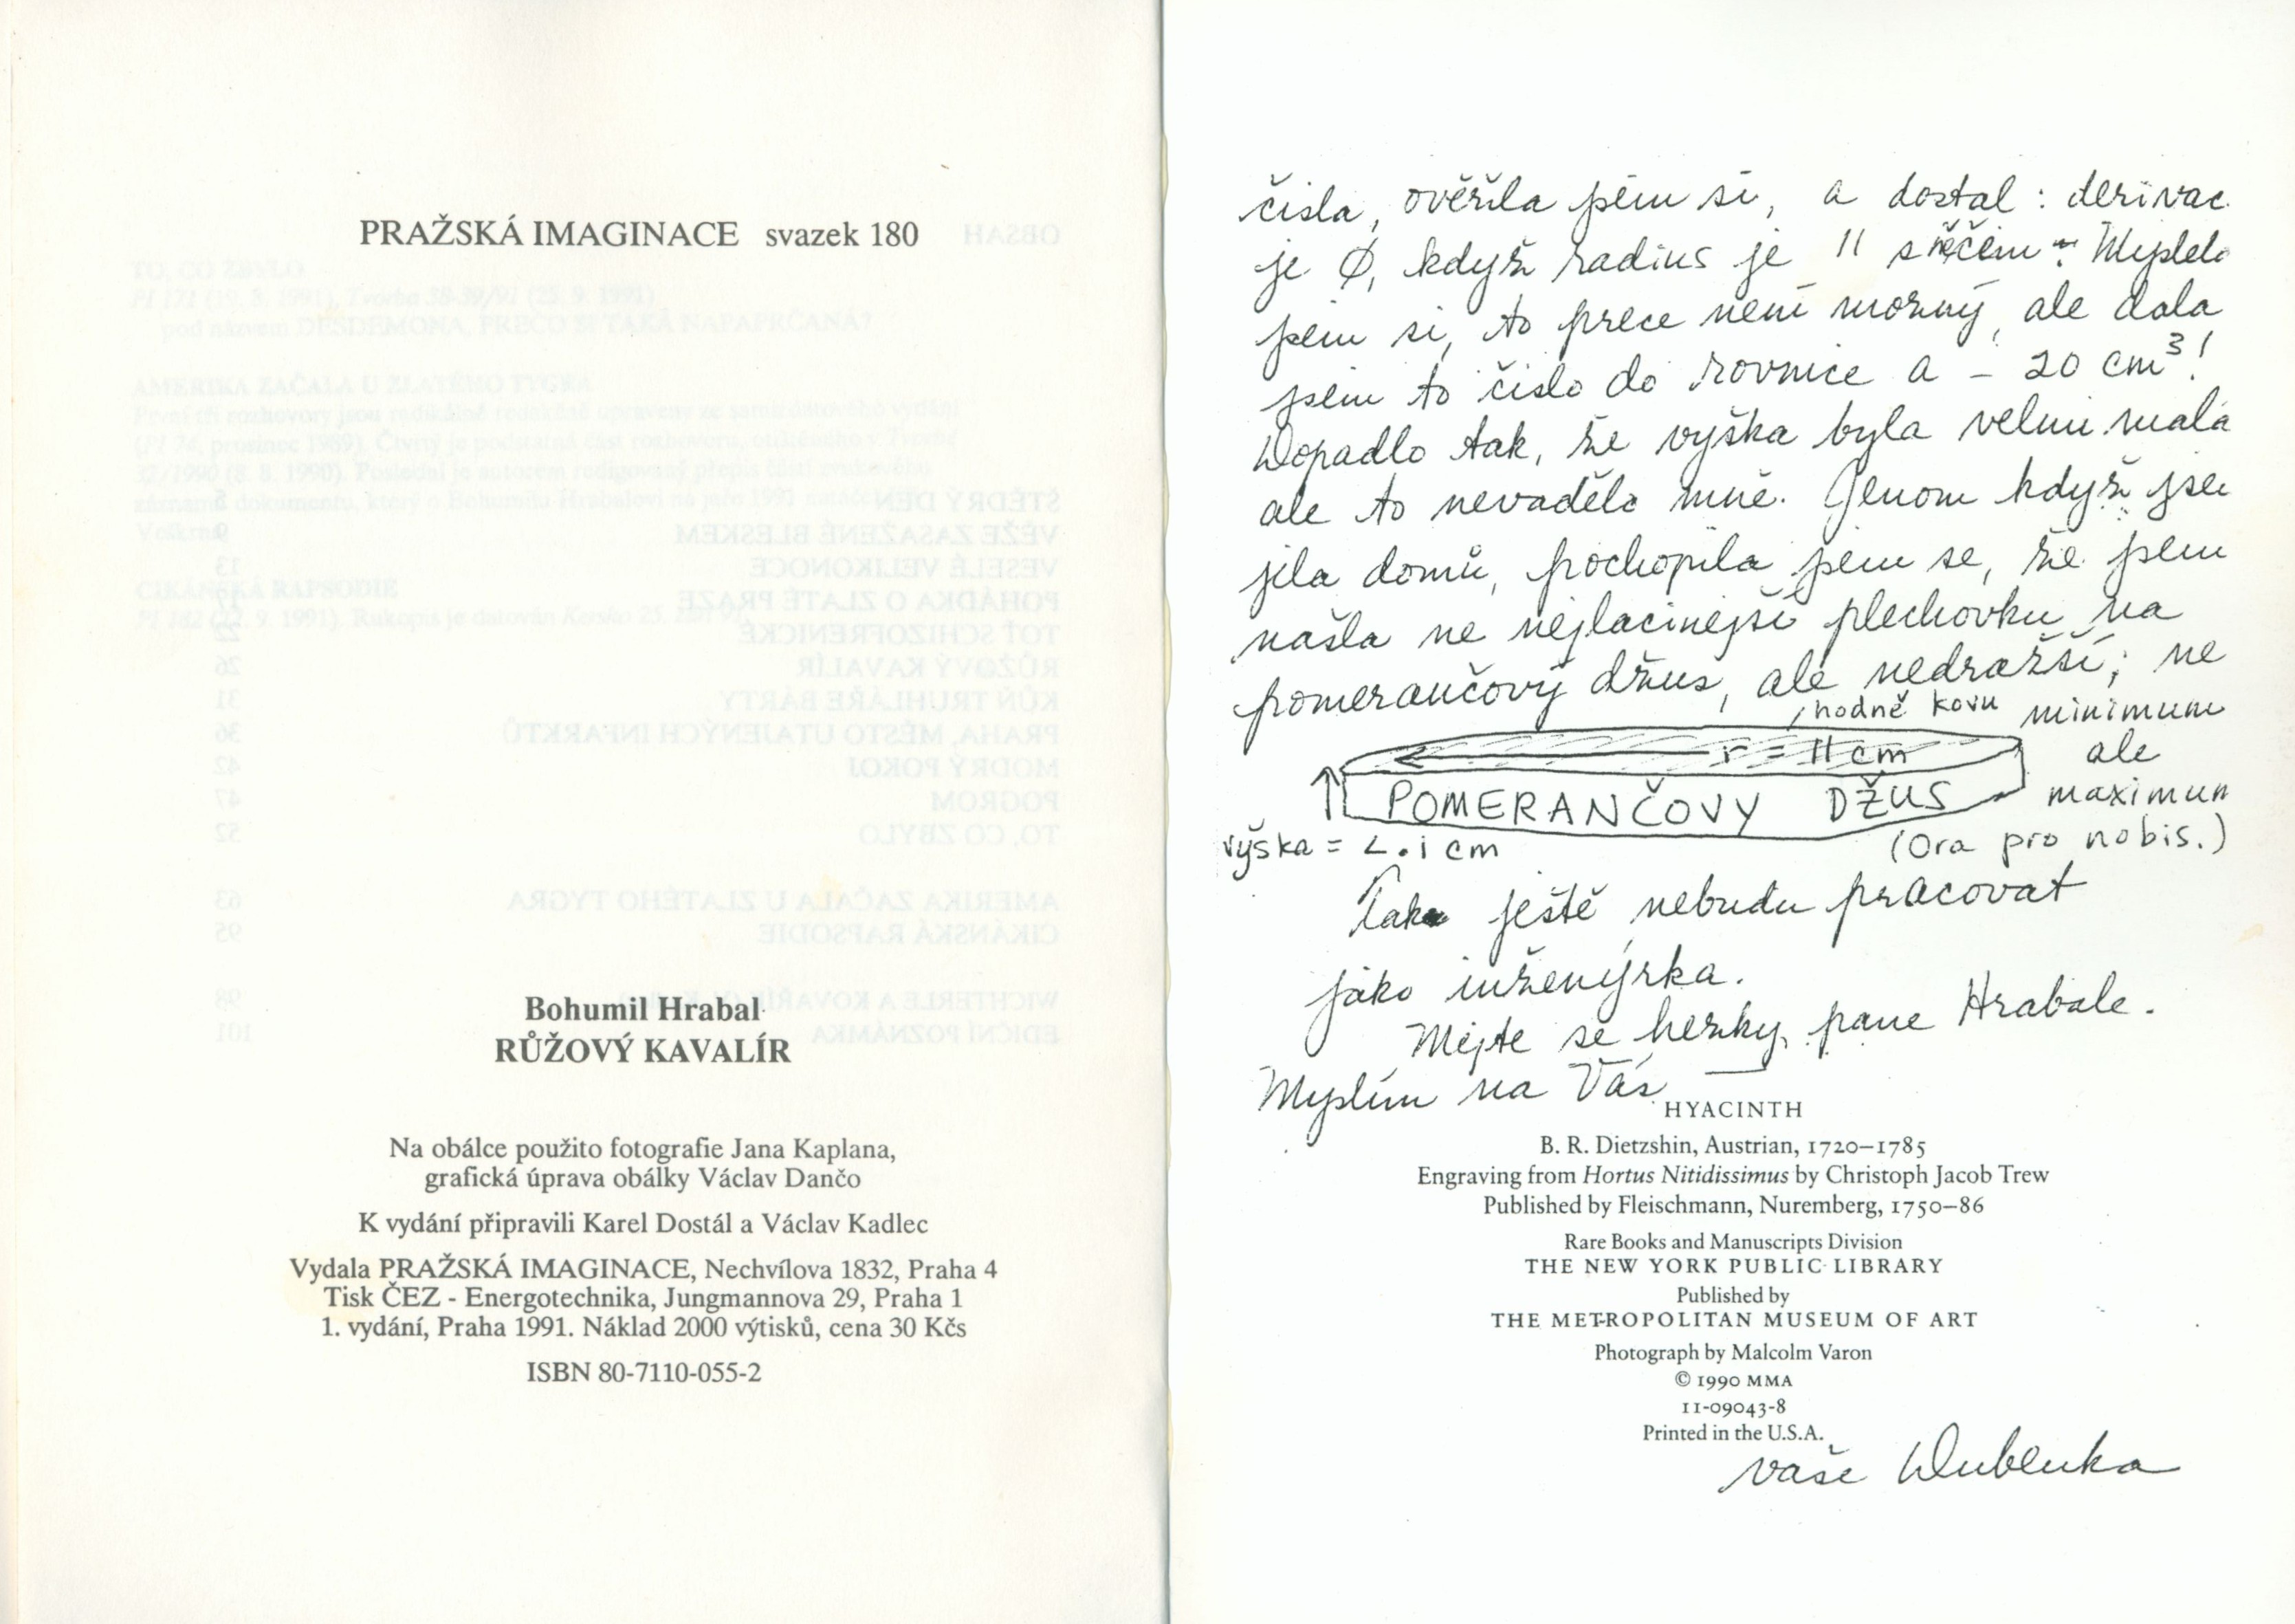 PRAŽSKÁ IMAGINACE svazek 180
Bohumil Hrabal
RŮŽOVÝ KAVALÍR
Na obálce použito fotografie Jana Kaplana,
grafická úprava obálky Václav Dančo
K vydání připravili Karel Dostál a Václav Kadlec
Vydala PRAŽSKÁ IMAGINACE, Nechvílova 1832, Praha 4
Tisk ČEZ - Energotechnika, Jungmannova 29, Praha 1
1. vydání, Praha 1991. Náklad 2000 výtisků, cena 30 Kčs
ISBN 80-7110-055-2
čísla, ověřila jsem si, a dostal : derivac
je Ø, když radius je 11 s něčím. Myslela
jsem si, to prece není možný, ale dala
jsem to číslo do rovnice a – 20 cm³!
Dopadlo tak, že vyška byla velmi malá
ale to nevadělo mně. Jenom když jse
jila domů, pochopila jsem se, že jsem
našla ne nejlacinejší plechovku na
pomerančový džus, ale nedražší; ne
hodně kovu minimum
r = 11 cm ale
POMERANČOVY DŽUS maximun
vyška = 2.1 cm (Ora pro nobis.)
Tak ještě nebudu pracovat
jako inženýrka.
Mějte se hezky, pane Hrabale.
Myslím na Vás —
HYACINTH
B. R. Dietzshin, Austrian, 1720–1785
Engraving from Hortus Nitidissimus by Christoph Jacob Trew
Published by Fleischmann, Nuremberg, 1750–86
Rare Books and Manuscripts Division
THE NEW YORK PUBLIC LIBRARY
Published by
THE METROPOLITAN MUSEUM OF ART
Photograph by Malcolm Varon
© 1990 MMA
11-09043-8
Printed in the U.S.A.
vaše Dubenka